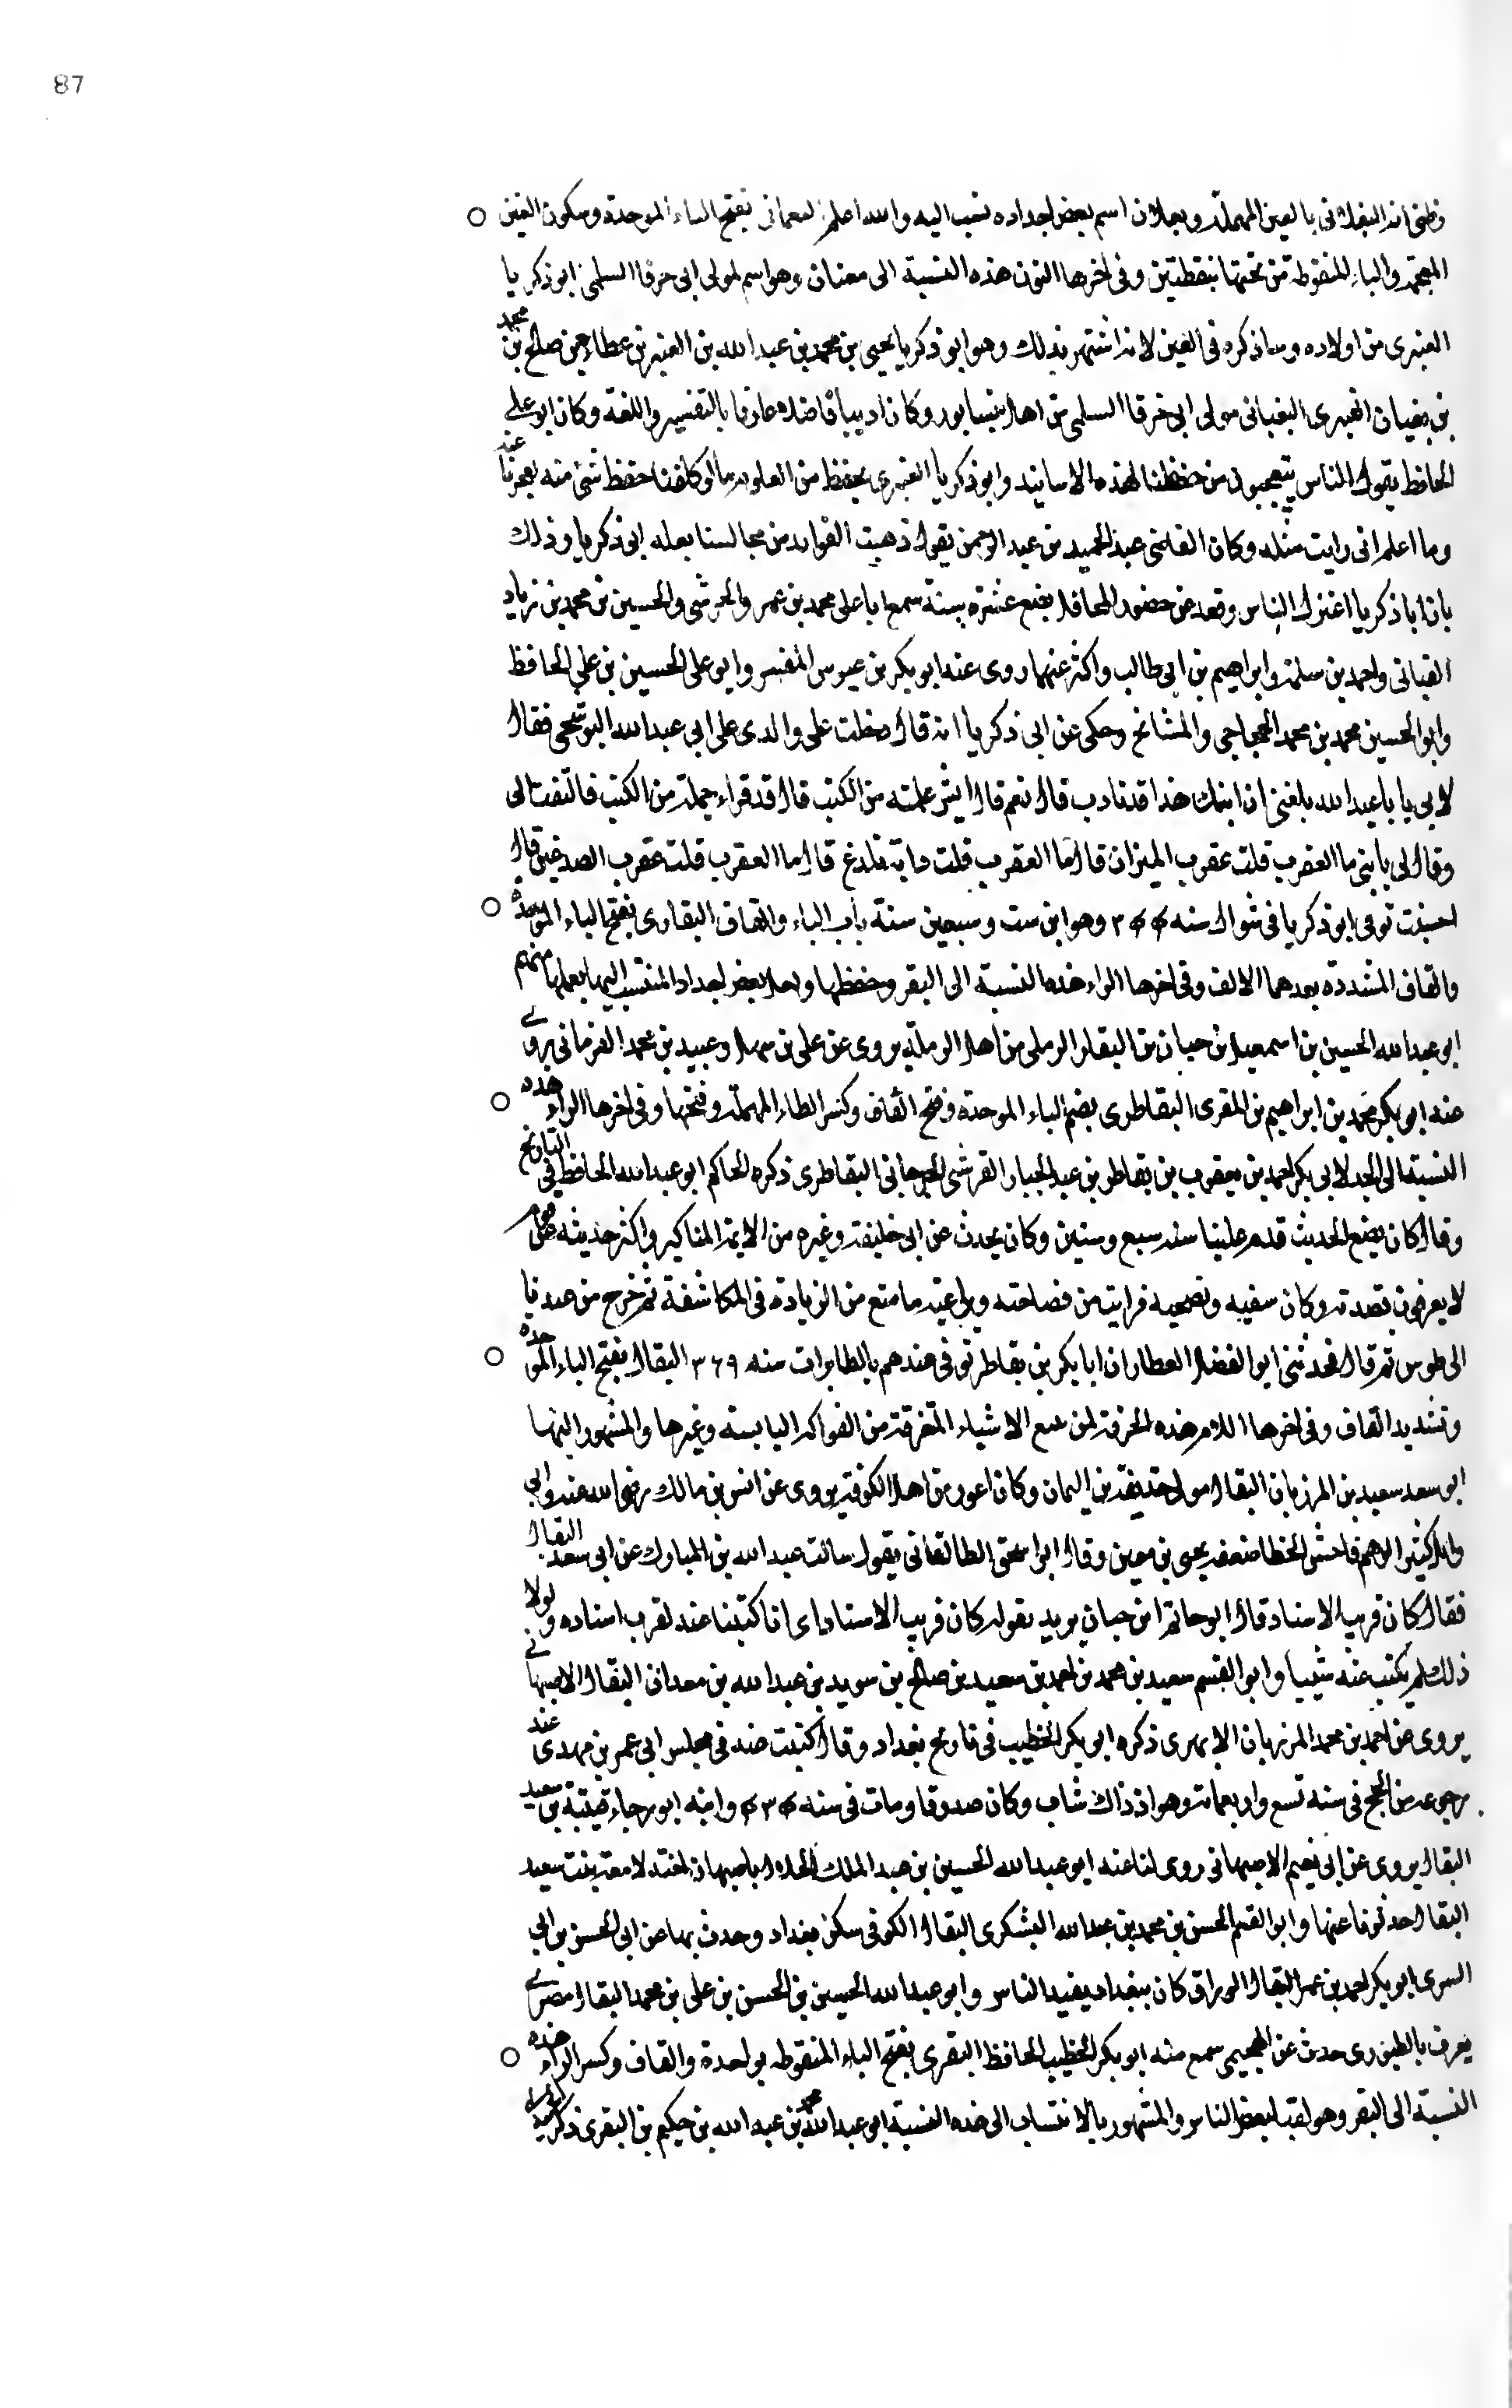 87
فظنى انه البغلانى بالعين المهملة وبعلان اسم بعض اجداده نسب اليه والله اعلم البغيانى بفتح الباء الموحدة وسكون الغين
المعجمة والياء المنقوطة من تحتها بنقطتين وفى اخرها النون هذه النسبة الى بغيان وهو اسم لمولى ابى خرقا السلمى ابو زكريا
العنبرى من اولاده وساذكره فى العين لانه اشتهر بذلك وهو ابو زكريا يحيى بن محمد بن عبد الله بن العنبر بن عطاء بن صالح بن محمد
بن بغيان العنبرى البغيانى مولى ابى خرقا السلمى من اهل نيسابور وكان اديبا فاضلا عارفا بالتفسير واللغة وكان ابو على
الحافظ يقول الناس يتعجبون من حفظنا لهذه الاسانيد وابو زكريا العنبرى يحفظ من العلوم ما لو كلفنا حفظ شئ منه لعجزنا عنه
وما اعلم انى رايت مثله وكان القاضى عبد الحميد بن عبد الرحمن يقول ذهبت الفوايد من مجالسنا بعد ابى زكريا وذلك
بان ابا زكريا اعتزل الناس وقعد عن حضور المحافل بضع عشرة سنة سمع ابا على محمد بن عمرو الحرشى والحسين بن محمد بن زياد
القبانى واحمد بن سلمة وابراهيم بن ابى طالب واكثر عنهما روى عنه ابو بكر بن عبدوس المفسر وابو على الحسين بن على الحافظ
وابو الحسين محمد بن محمد الحجاجى والمشائخ وحكى عن ابى زكريا انه قال دخلت على والدى على ابى عبد الله البوشنجى فقال
لابى يا با عبد الله بلغنى ان ابنك هذا قد تادب قال نعم قال ايش علمته من الكتب قال قد قراء جملة من الكتب فالتفت الى
وقال لى يا بنى ما العقرب قلت عقرب الميزان قال اما العقرب قلت دابة تلدغ قال اما العقرب قلت عقرب الصدغين قال
احسنت توفى ابو زكريا فى شوال سنه ٣۴۴ وهو ابن ست وسبعين سنة باب الباء والقاف البقارى بفتح الباء الموحدة
والقاف المشددة بعدهما الالف وفى اخرها الراء هذه النسبة الى البقر وحفظها ولعل بعض اجداد المنتسب اليها يعملها منهم
ابو عبد الله الحسين بن اسمعيل بن حيان بن البقار الرملى من اهل الرملة يروى عن على بن سهل وعبيد بن محمد الفرمانى روى
عنه ابو بكر محمد بن ابراهيم بن المقرى البقاطرى بضم الباء الموحدة وفتح القاف وكسر الطاء المهملة وفتحها وفى اخرها الراء هذه
النسبة الى الجد لابى بكر احمد بن يعقوب بن بقاطر بن عبد الجبار القرشى الجرجانى البقاطرى ذكره الحاكم ابو عبد الله الحافظ فى التاريخ
وقال كان يضع الحديث قدم علينا سنه سبع وستين وكان يحدث عن ابى خليفة وغيره من الايمة المناكير واكثر حديثه عن قوم
لا يعرفون قصدته وكان سفيه فرايت من فصاحته وبراعته ما منع من الزيادة فى المكاشفة ثم خرج من عندنا
الى طوس ثم قال فحدثنى ابو الفضل العطار ان ابا بكر بن بقاطر توفى عندهم بالطابران سنه ٣۶٩ البقال بفتح الباء الموحدة
وتشديد القاف وفى اخرها اللام هذه الحرفة لمن يبيع الاشياء المتفرقة من الفواكه اليابسه وغيرها والمشهور اليها
ابو سعد سعيد بن المرزبان البقال مولى حذيفة بن اليمان وكان اعور من اهل الكوفة يروى عن انس بن مالك رضى الله عنه وابى
وايل كثير الوهم فاحش الخطا ضعفه يحيى بن معين وقال ابو اسحق الطالقانى يقول سالت عبد الله بن المبارك عن ابى سعد البقال
فقال كان قريب الاسناد قال ابو حاتم ابن حبان يريد بقوله كان قريب الاسناد اى انا كتبنا عنه لقرب اسناده ولولا
ذلك لم يكتب عنه شيا وابو القسم سعيد بن محمد بن احمد بن سعيد بن صالح بن سويد بن عبد الله بن معدان البقال الاصبهانى
يروى عن احمد بن محمد المرزبان الابهرى ذكره ابو بكر الخطيب فى تاريخ بغداد وقال كتبت عنه فى مجلس ابى عمر بن مهدى عند
رجوعه من الحج فى سنة تسع واربعماية وهو اذ ذاك شاب وكان صدوقا ومات فى سنه ۴٣۴ وابنه ابو رجاء قتيبة بن سعيد
البقال يروى عن ابى نعيم الاصبهانى روى لنا عنه ابو عبد الله الحسين بن عبد الملك الخلال باصبهان اخته لامعة بنت سعيد
البقال حدثونا عنها وابو القسم الحسن بن محمد بن عبد الله اليشكرى البقال الكوفى سكن بغداد وحدث بها عن ابى الحسن بن ابى
السرى ابو بكر احمد بن عمر البقال الوراق كان ببغداد يفيد الناس وابو عبد الله الحسين بن الحسن بن على بن محمد البقال مصرى
يعرف حدث عن سمع منه ابو بكر الخطيب الحافظ البقرى بفتح الباء المنقوطه بواحدة والقاف وكسر الراء هذه
النسبة الى البقر وهو لقب لبعض الناس والمشهور بالانتساب الى هذه النسبة ابو عبد الله محمد بن عبد الله بن حكيم بن البقرى ذكره